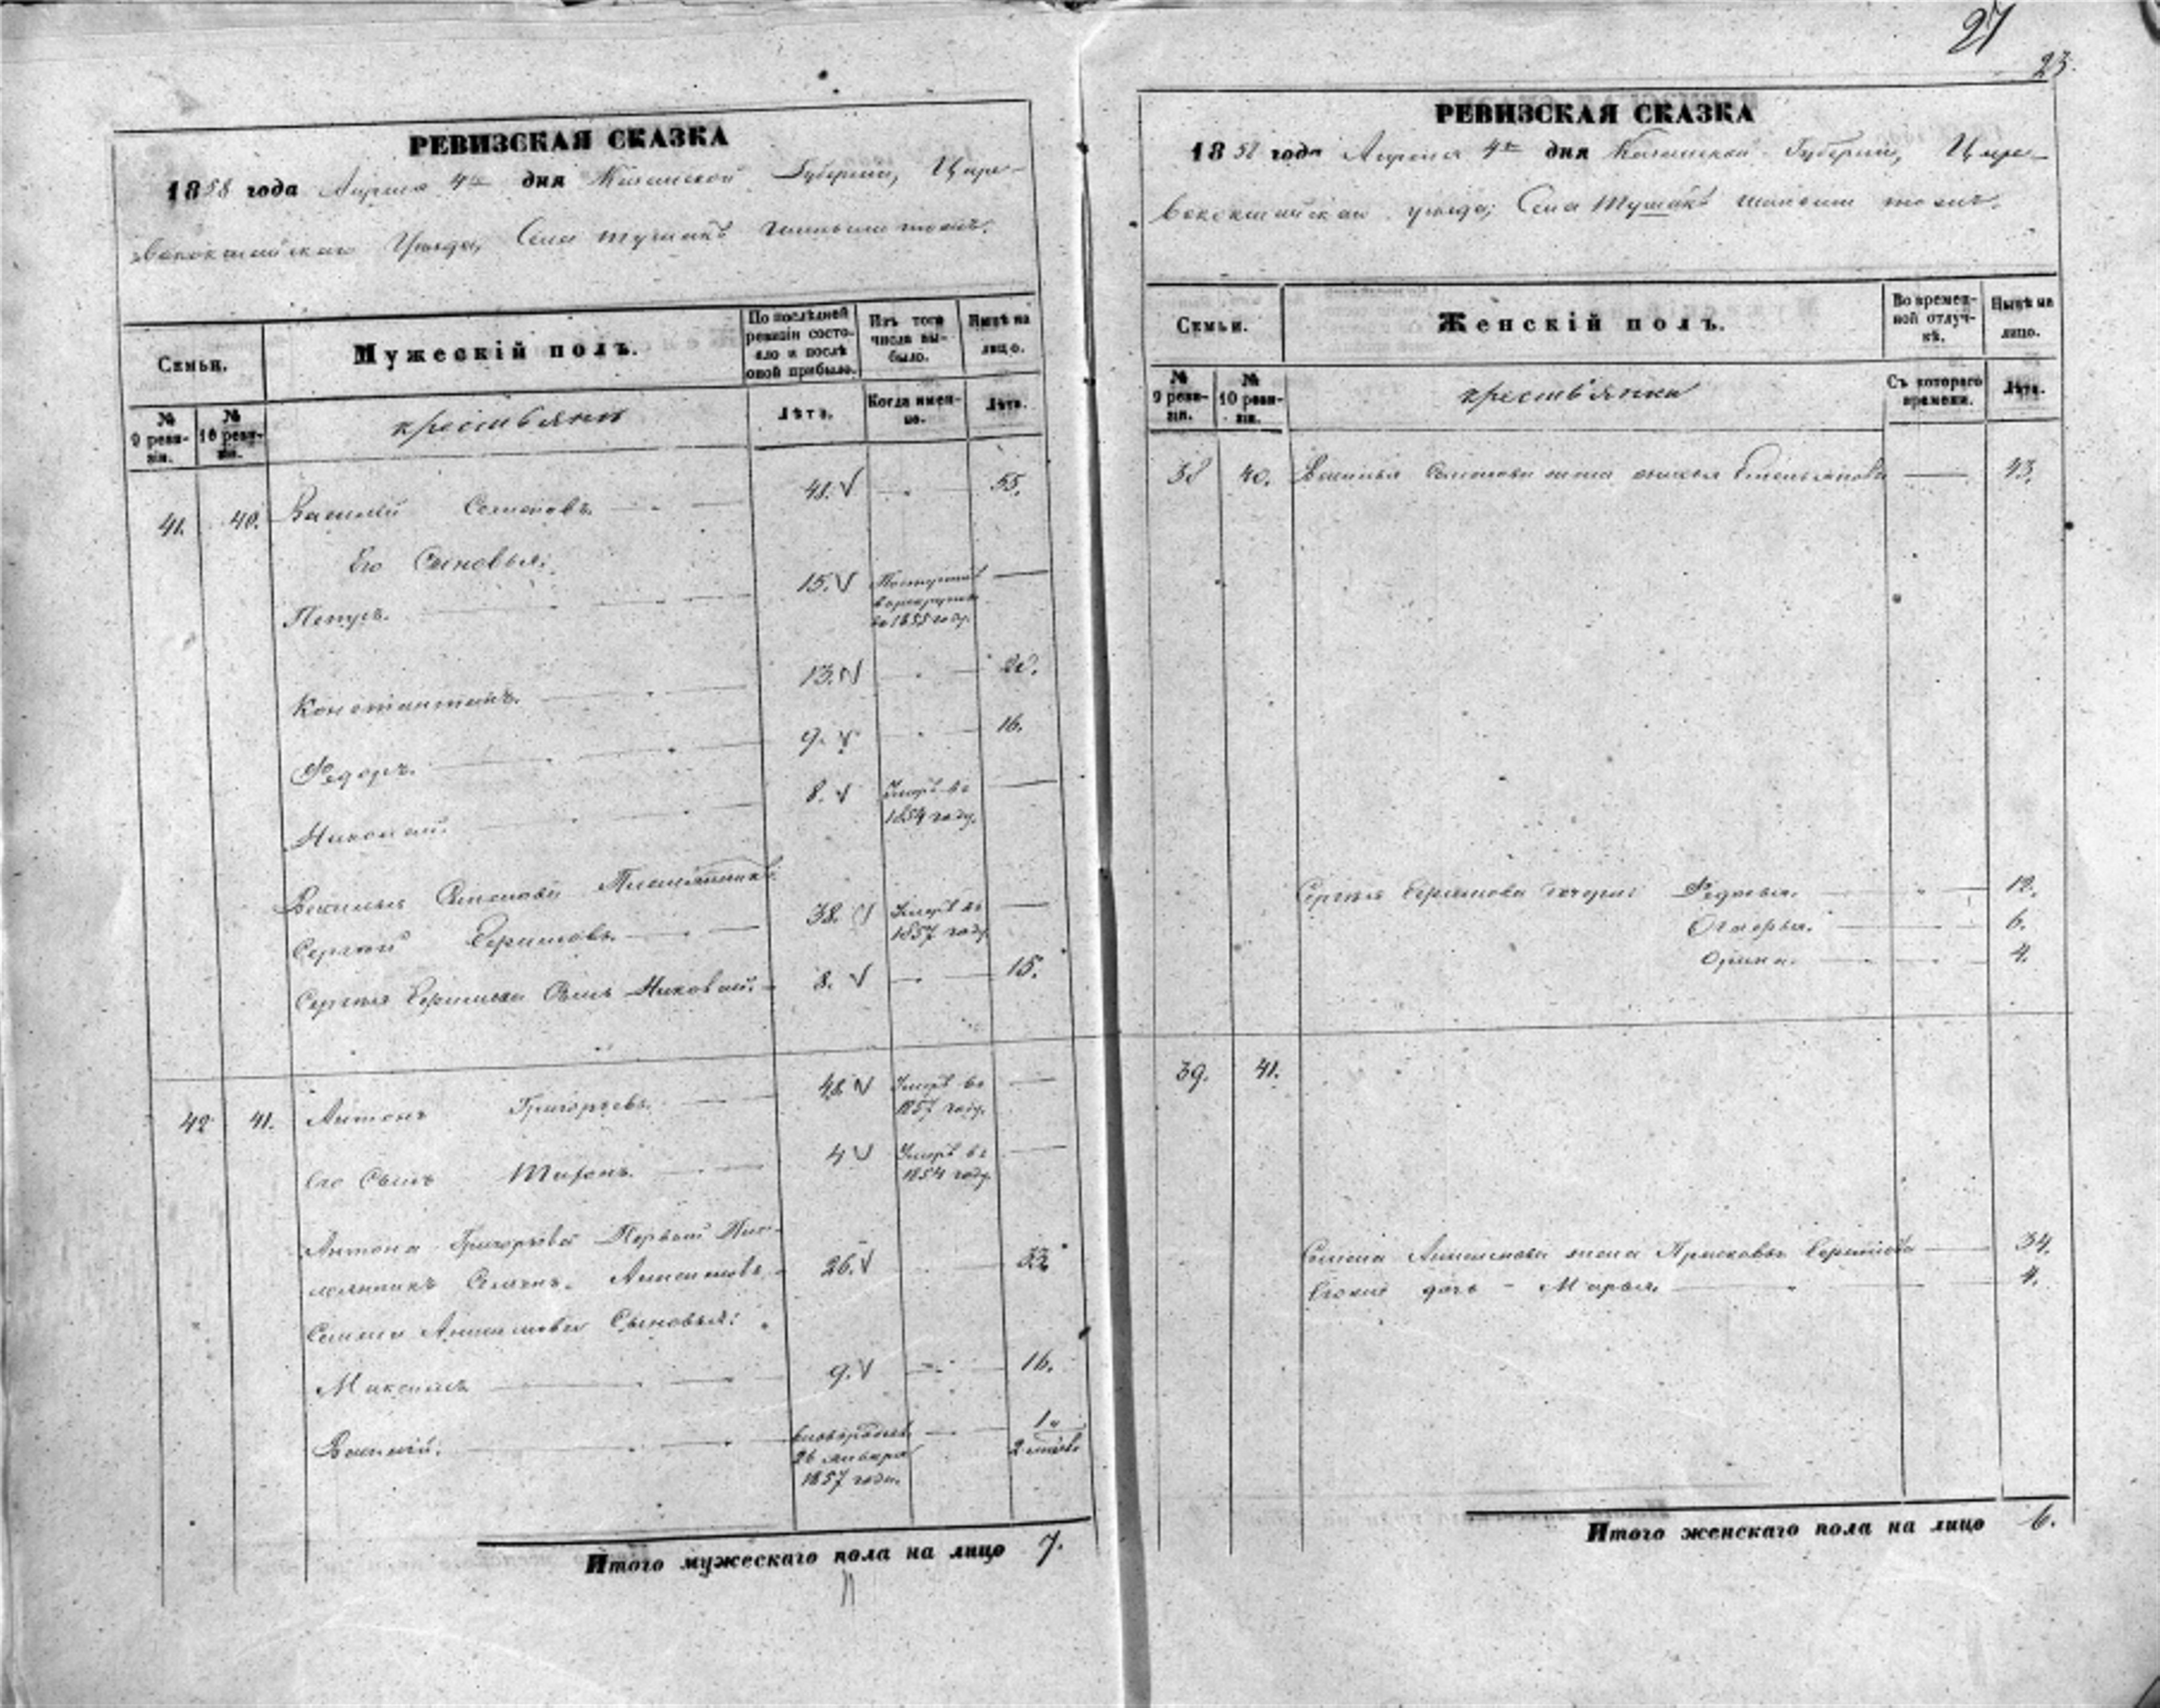 27
23.
РЕВИЗСКАЯ СКАЗКА
1858 года Апреля 4го дня Казанской Губернии, Царе-
вококшайскаго Уезда, Села
Семьи.
Мужескій полъ.
По послѣдней ревизіи состояло и послѣ оной прибыло.
Изъ того числа выбыло.
Нынѣ на лицо.
№ 9 ревизіи.
№ 10 ревизіи.
крестьяни
Лѣта.
Когда именно.
Лѣта.
41. 40. Василий Семеновъ 41. 55.
Его Сыновья:
15. Поступилъ в рекруты в 1855 году.
Константинъ. 13. 20.
Федоръ. 9. 16.
Николай. 8. Умеръ въ 1854 году.
Василья Семенова Племянникъ
Сергей Ефимовъ 38. Умеръ въ 1857 году.
Сергея Ефимова Сынъ Николай. 8. 15.
42 41. Антонъ Григорьевъ 48 Умеръ въ 1857 году.
Его Сынъ 4 Умеръ въ 1854 году.
Антона Григорьева Первой Пле-
мянникъ Семенъ 26. 33.
Семена Сыновья:
Максимъ 9. 16.
Василий. 26 января 1857 года. 1 2
Итого мужескаго пола на лицо 7.
РЕВИЗСКАЯ СКАЗКА
1858 года Апреля 4го дня Казанской Губернии, Царе-
вококшайскаго уезда; Села
Семьи.
Женскій полъ.
Во временной отлучкѣ.
Нынѣ на лицо.
№ 9 ревизіи.
№ 10 ревизіи.
крестьянки
Съ котораго времени.
Лѣта.
38 40. Василья Семенова жена Емельянова 43.
Сергея Ефимова дочери: Федосья. 12.
6.
Орина. 4.
39. 41.
Семена жена Прасковья 34.
дочь - Марья. 4.
Итого женскаго пола на лицо 6.